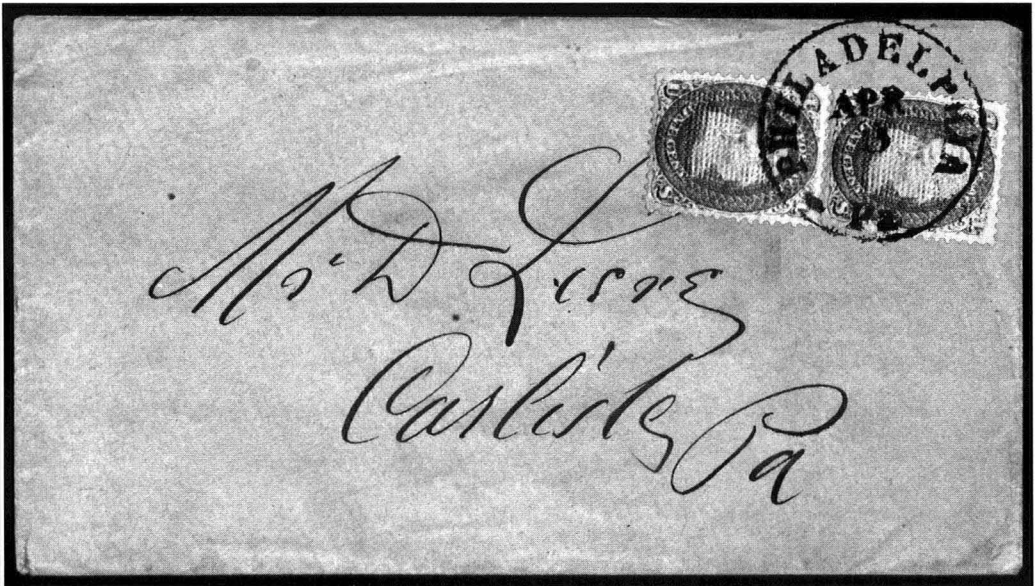 PHILADELPHIA
APR
Pa
Mr D
Carlisle Pa